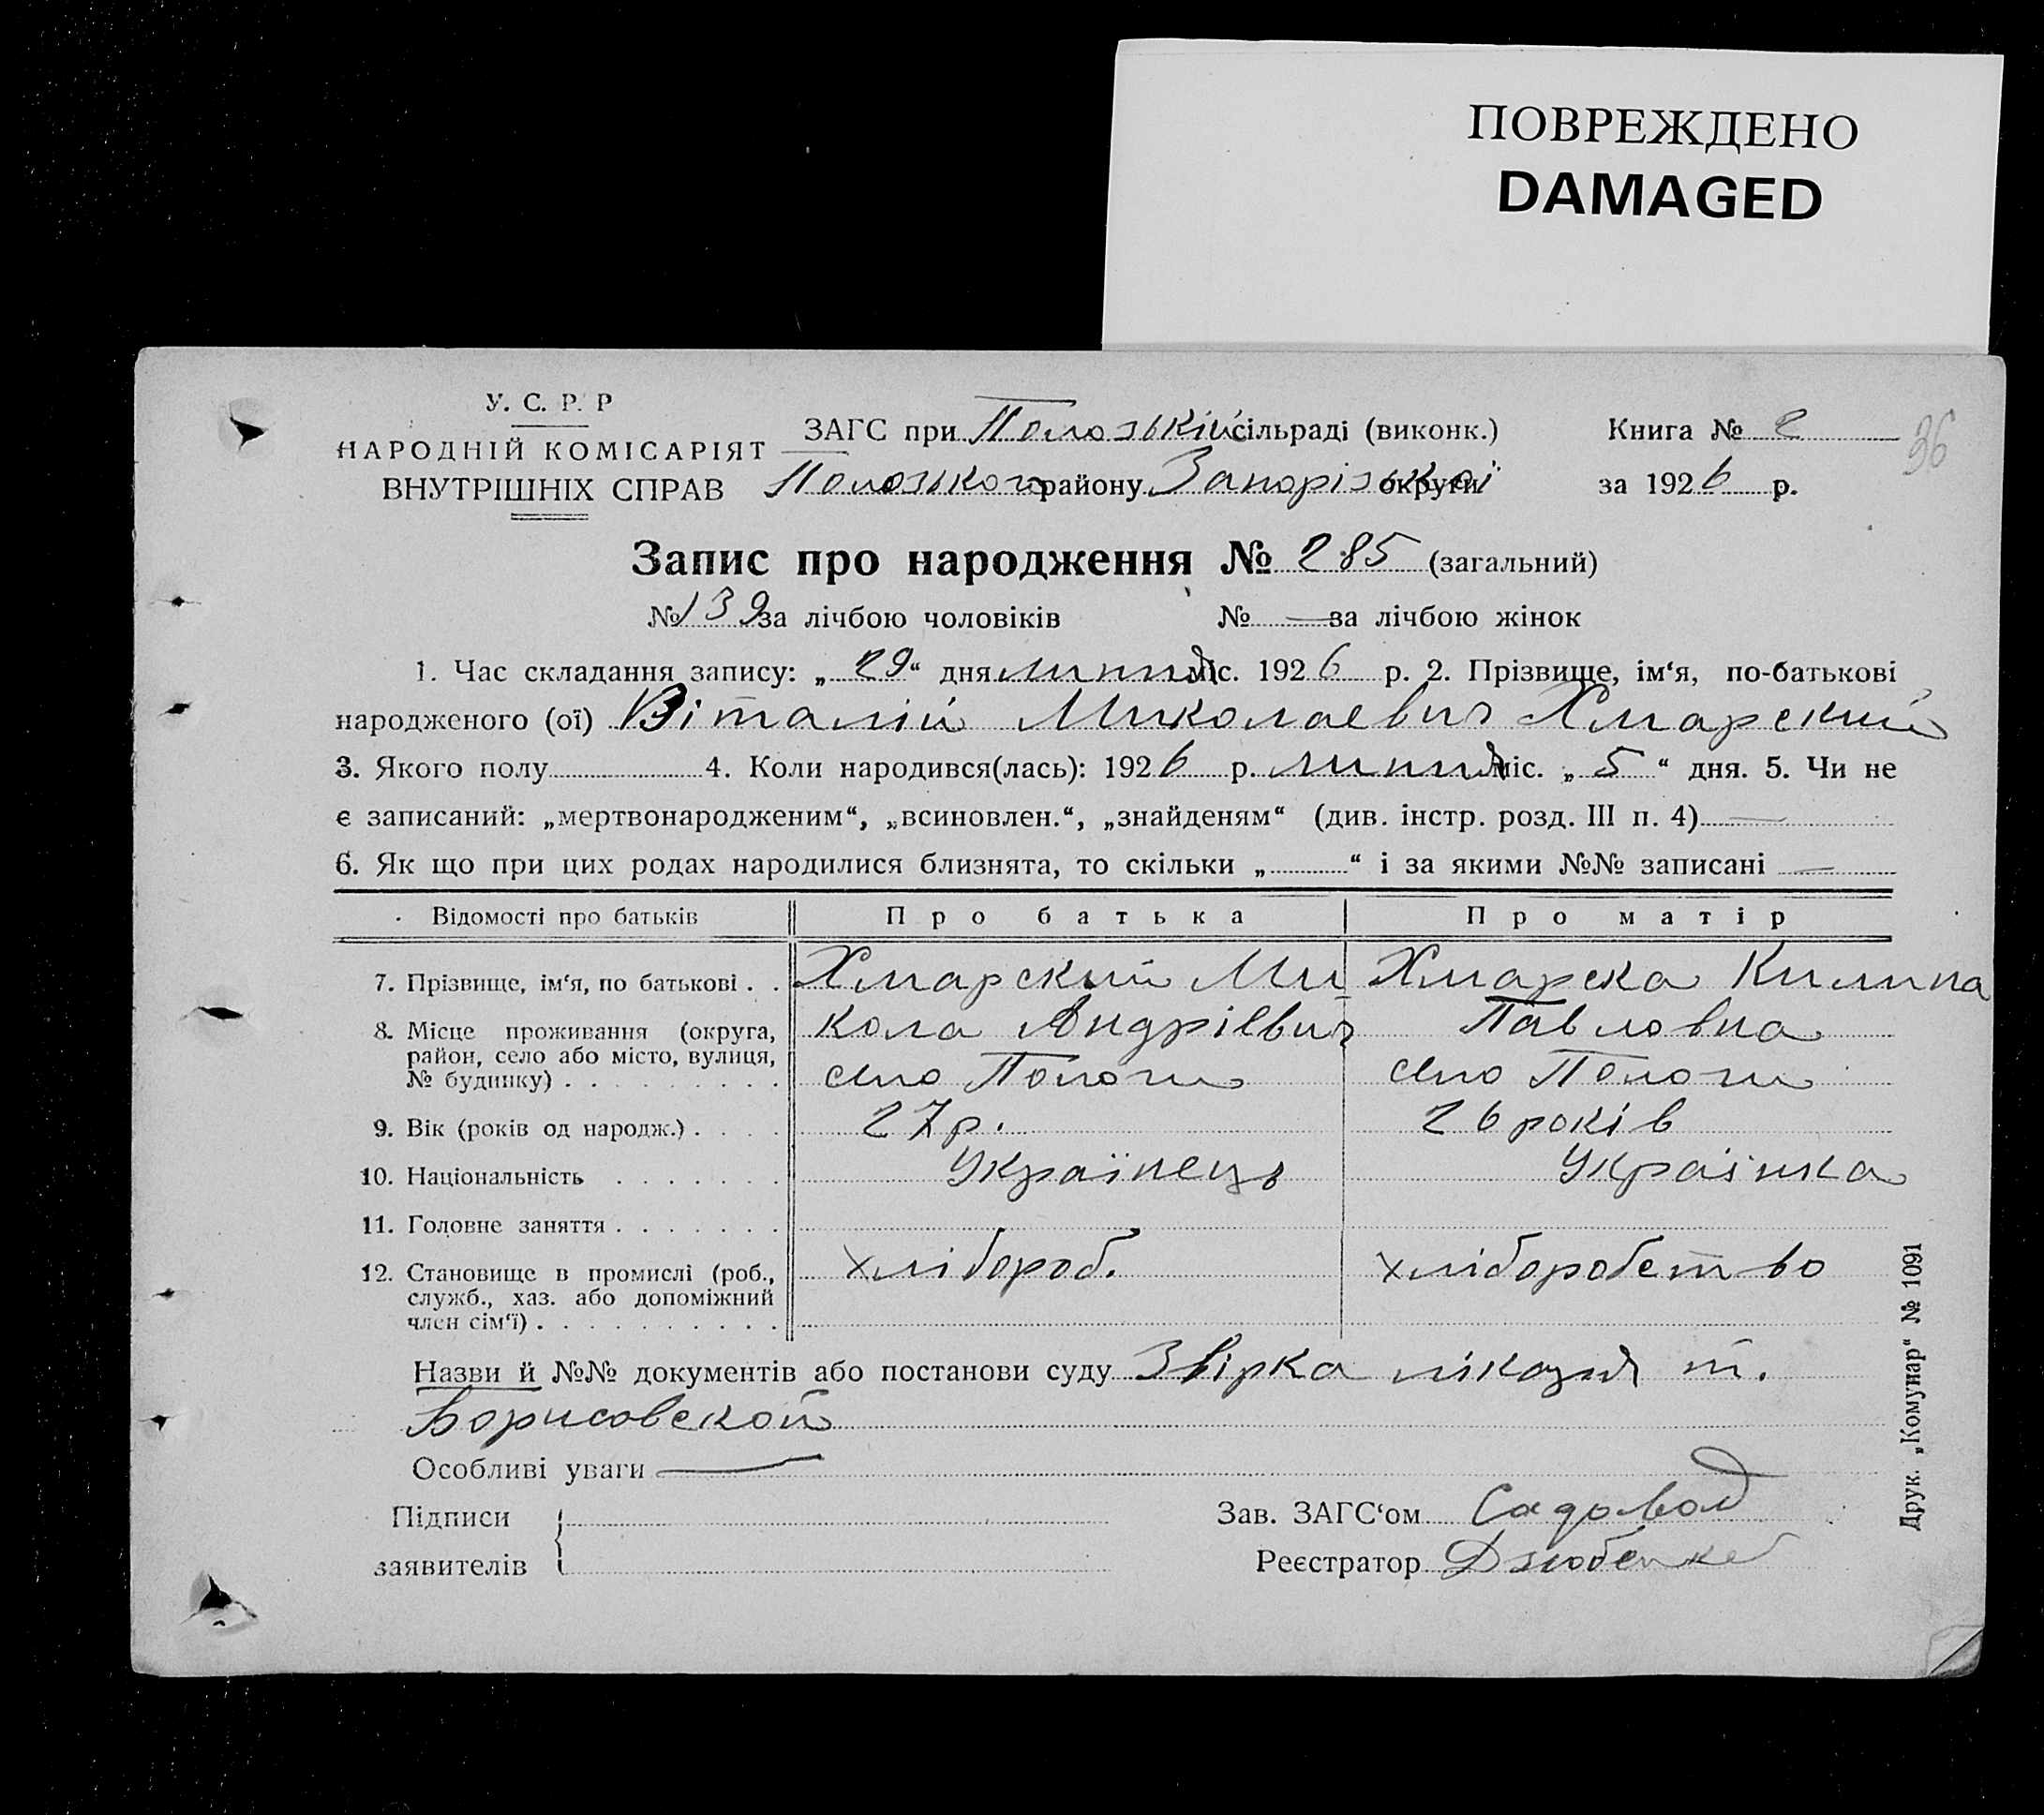 ПОВРЕЖДЕНО
DAMAGED
У. С. Р. Р
НАРОДНІЙ КОМІСАРІЯТ
ВНУТРІШНІХ СПРАВ
ЗАГС при Полозькій сільраді (виконк.) Книга № 2
36
Полозького району Запорізької округи за 1926 р.
Запис про народження № 285 (загальний)
№ 139 за лічбою чоловіків № — за лічбою жінок
1. Час складання запису: „29“ дня липня міс. 1926 р. 2. Прізвище, ім‘я, по-батькові
народженого (ої) Віталій Миколаевич Хмарский
3. Якого полу 4. Коли народився(лась): 1926 р. липня міс. „5“ дня. 5. Чи не
є записаний: „мертвонародженим“, „всиновлен.“, „знайденям“ (див. інстр. розд. III п. 4) —
6. Як що при цих родах народилися близнята, то скільки „ “ і за якими №№ записані —
Відомості про батьків Про батька Про матір
7. Прізвище, ім‘я, по батькові . . Хмарский Ми Хмарска Килина
8. Місце проживання (округа, кола Андрієвич Павловна
район, село або місто, вулиця,
№ будинку) . . . . . . . . . село Пологи село Пологи
9. Вік (років од народж.) . . . . 27 р. 26 років
10. Національність . . . . . . . Українець Українка
11. Головне заняття . . . . . . .
12. Становище в промислі (роб., хлібороб. хліборобство
служб., хаз. або допоміжний
член сім‘ї) . . . . . . . . . .
Назви й №№ документів або постанови суду Звірка лікаря т.
Борисовской
Особливі уваги —
Підписи
заявителів
Зав. ЗАГС‘ом Садовой
Реєстратор Дзюбенко
Друк. „Комунар“ № 1091